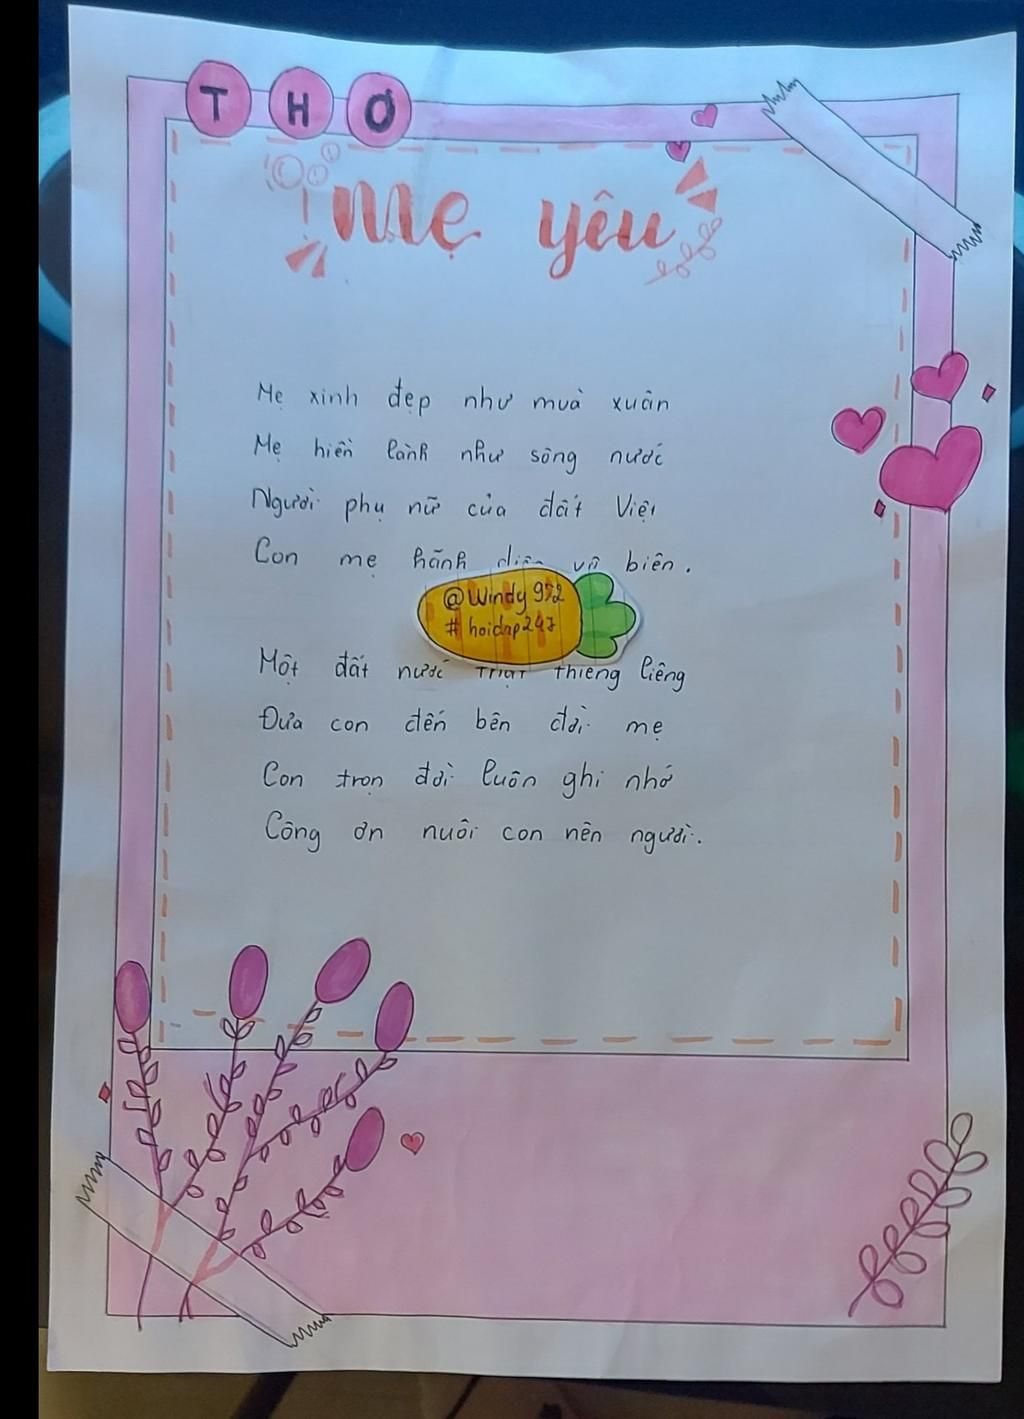 THƠ
Mẹ yêu
Mẹ xinh đẹp như muà xuân
Mẹ hiền lành như sông nước
Người phụ nữ của đất Việt
Con mẹ hãnh diện vô biên.
@Windy 952
# hoidap247
Một đất nước thật thiêng liêng
Đưa con đến bên đời mẹ
Con trọn đời luôn ghi nhớ
Công ơn nuôi con nên người.